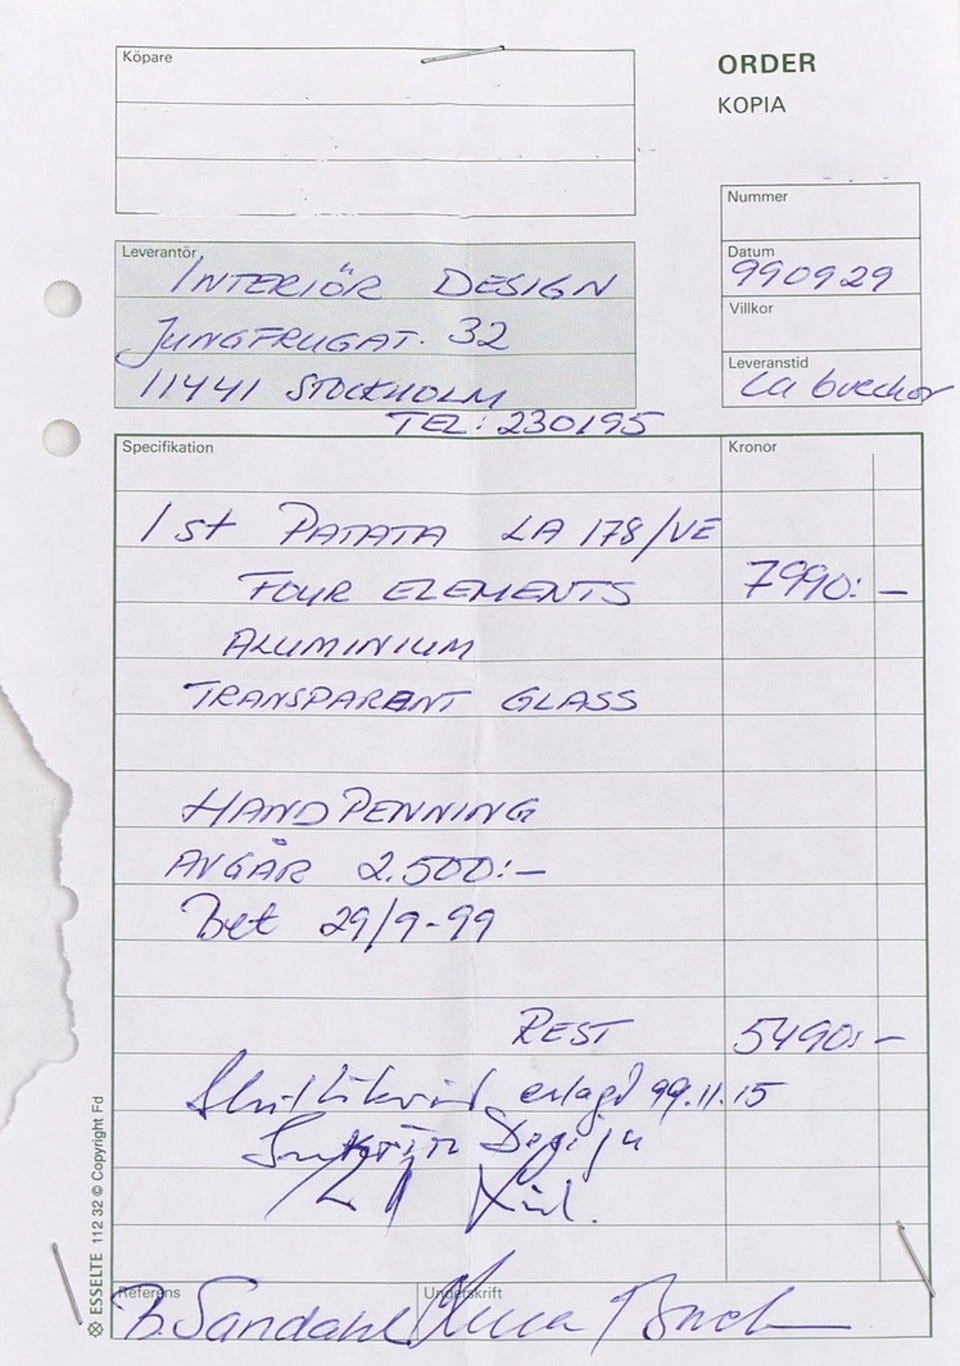 Köpare
ORDER
KOPIA
Nummer
Leverantör
INTERIÖR DESIGN
JUNGFRUGAT. 32
11441 STOCKHOLM
TEL: 230195
Datum
990929
Villkor
Leveranstid
Specifikation
Kronor
1 st PATATA LA 178/VE
FOUR ELEMENTS 7990:-
ALUMINIUM
TRANSPARENT GLASS
HANDPENNING
AVGÅR 2.500:-
Bet 29/9-99
REST 5490:-
Slutlikvid erlagd 99.11.15
Referens
Underskrift
B. Sandahl
ESSELTE 112 32 © Copyright Fd